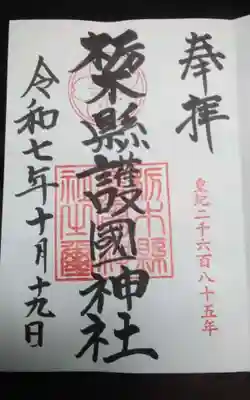 奉拝
皇紀二千六百八十五年
栃木縣護國神社
令和七年十月十九日